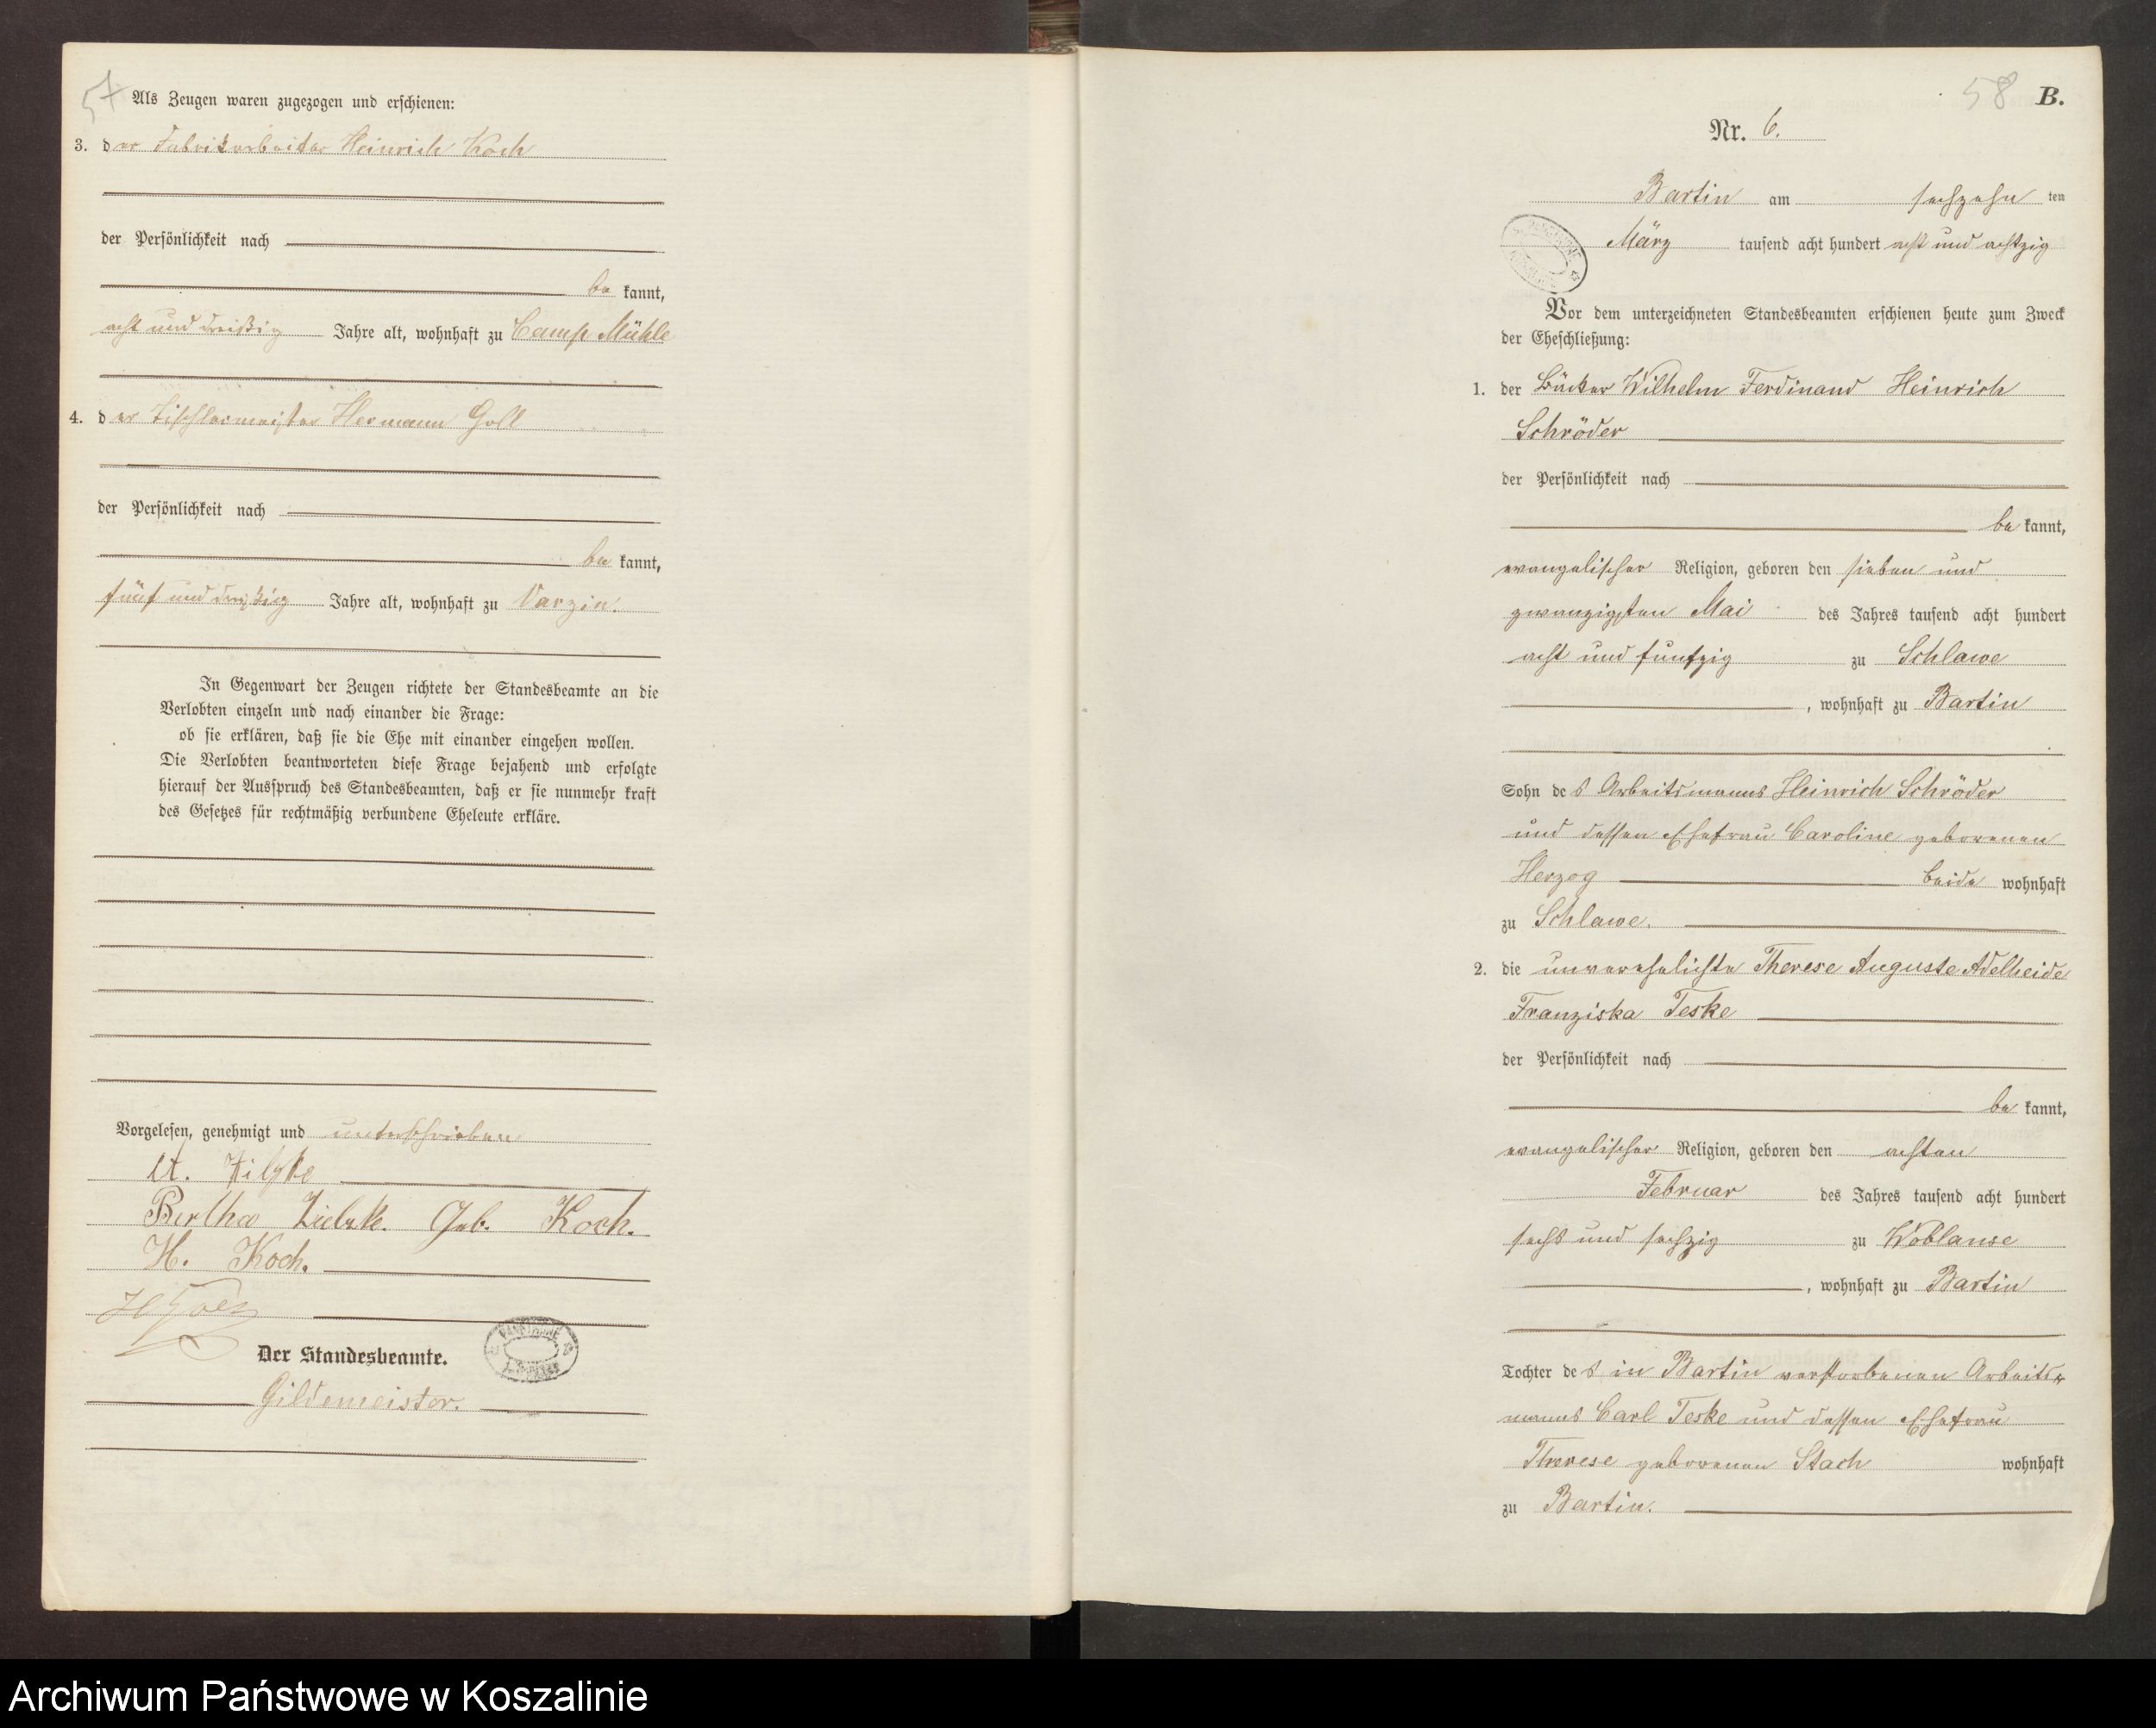 57
Als Zeugen waren zugezogen und erschienen:
3. der Fabrikarbeiter Heinrich Koch
der Persönlichkeit nach
be kannt,
acht und dreißig Jahre alt, wohnhaft zu Camp Mühle
4. der Tischlermeister Hermann Goll
der Persönlichkeit nach
be kannt,
fünf und dreißig Jahre alt, wohnhaft zu Varzin.
In Gegenwart der Zeugen richtete der Standesbeamte an die
Verlobten einzeln und nach einander die Frage:
ob sie erklären, daß sie die Ehe mit einander eingehen wollen.
Die Verlobten beantworteten diese Frage bejahend und erfolgte
hierauf der Ausspruch des Standesbeamten, daß er sie nunmehr kraft
des Gesetzes für rechtmäßig verbundene Eheleute erkläre.
Vorgelesen, genehmigt und unterschrieben
Bertha Geb. Koch.
H. Koch.
Der Standesbeamte.
Gildemeister.
58 B.
Nr. 6.
Bartin am sechzehn ten
März tausend acht hundert acht und achtzig
Vor dem unterzeichneten Standesbeamten erschienen heute zum Zweck
der Eheschließung:
1. der Bäcker Wilhelm Ferdinand Heinrich
Schröder
der Persönlichkeit nach
be kannt,
evangelischer Religion, geboren den sieben und
zwanzigsten Mai des Jahres tausend acht hundert
acht und funfzig zu Schlawe
, wohnhaft zu Bartin
Sohn des Arbeitsmanns Heinrich Schröder
und dessen Ehefrau Caroline geborenen
Herzog beide wohnhaft
zu Schlawe.
2. die unverehelichte Therese Auguste Adelheide
Franziska Teske
der Persönlichkeit nach
be kannt,
evangelischer Religion, geboren den achten
Februar des Jahres tausend acht hundert
sechs und sechzig zu Woblanse
, wohnhaft zu Bartin
Tochter des in Bartin verstorbenen Arbeits-
manns Carl Teske und dessen Ehefrau
Therese geborenen Stach wohnhaft
zu Bartin.
Archiwum Państwowe w Koszalinie